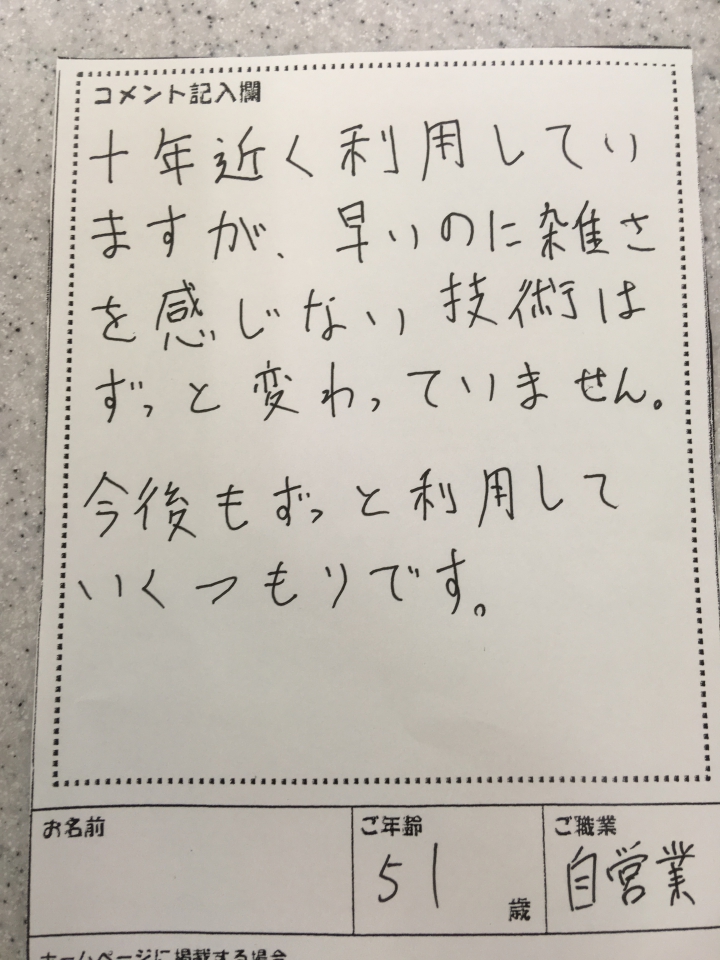 コメント記入欄
十年近く利用してい
ますが、早いのに雑さ
を感じない技術は
ずっと変わっていません。
今後もずっと利用して
いくつもりです。
お名前
ご年齢
ご職業
51
歳
自営業
ホームページに掲載する場合